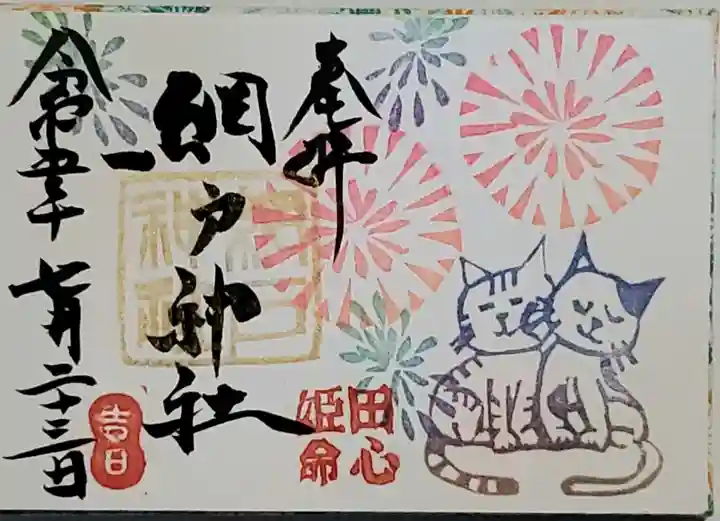 奉拝
網戸神社
田心
姫命
令和五年
七月二十三日
吉日